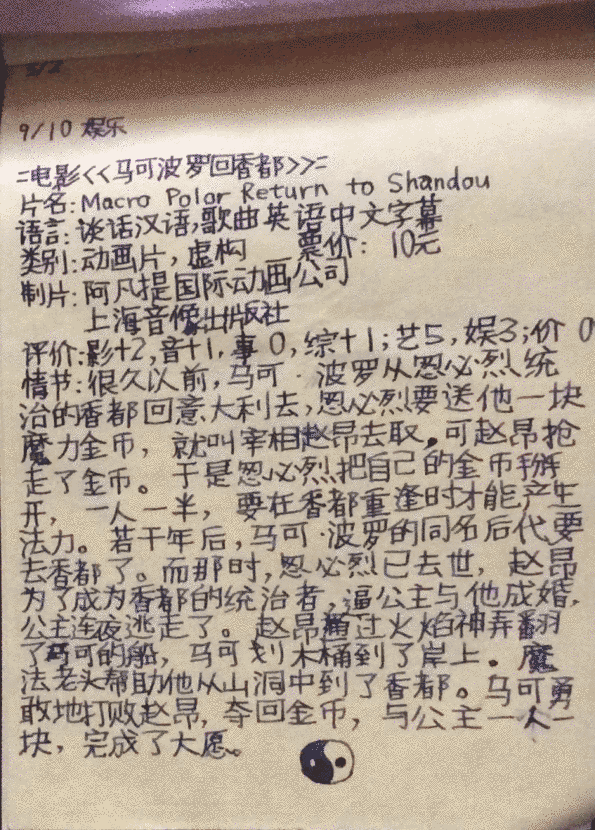 9/10 娱乐
=电影<<马可波罗回香都>>=
片名:Macro Polor Return to Shandou
语言:谈话汉语,歌曲英语中文字幕
类别:动画片,虚构 票价: 10元
制片:阿凡提国际动画公司
上海音像出版社
评价:影+2,音+1,事0,综+1;艺5,娱3;价0
情节:很久以前,马可·波罗从忽必烈统
治的香都回意大利去,忽必烈要送他一块
魔力金币,就叫宰相赵昂去取。可赵昂抢
走了金币。于是忽必烈把自己的金币掰
开,一人一半,要在香都重逢时才能产生
法力。若干年后,马可·波罗的同名后代要
去香都了。而那时,忽必烈已去世,赵昂
为了成为香都的统治者,逼公主与他成婚,
公主连夜逃走了。赵昂通过火焰神弄翻
了马可的船,马可划木桶到了岸上。魔
法老头帮助他从山洞中到了香都。马可勇
敢地打败赵昂,夺回金币,与公主一人一
块,完成了大愿。